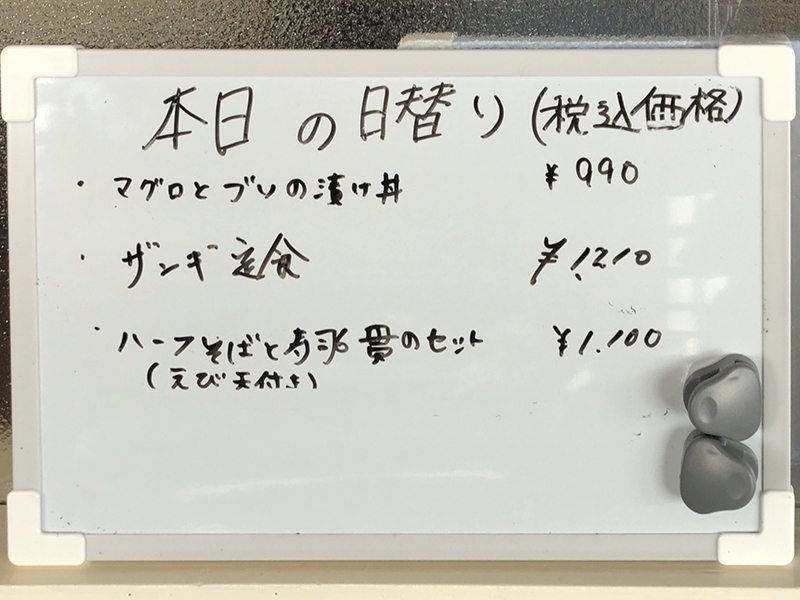 本日の日替り(税込価格)
・マグロとブリの漬け丼 ¥990
・ザンギ定食 ¥1,210
・ハーフそばと寿司6貫のセット ¥1,100
(えび天付き)